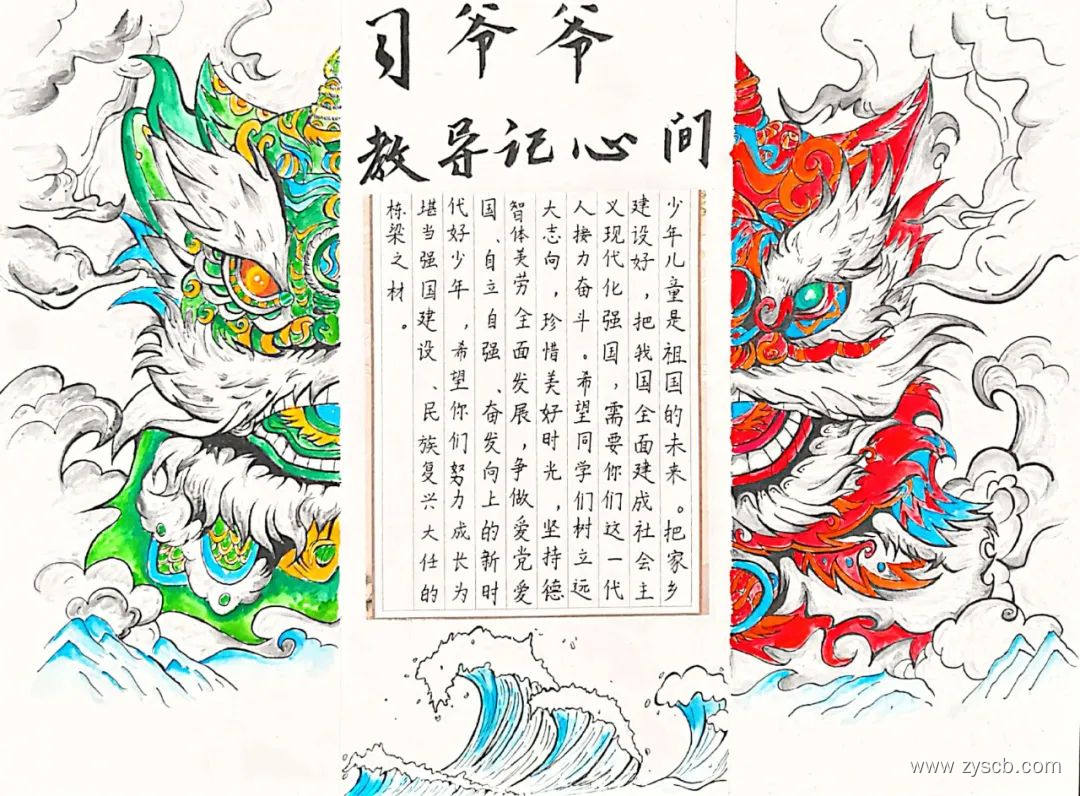 习爷爷
教导记心间
少年儿童是祖国的未来。把家乡
建设好，把我国全面建成社会主
义现代化强国，需要你们这一代
人接力奋斗。希望同学们树立远
大志向，珍惜美好时光，坚持德
智体美劳全面发展，争做爱党爱
国、自立自强、奋发向上的新时
代好少年，希望你们努力成长为
堪当强国建设、民族复兴大任的
栋梁之材。
www.zyscb.com